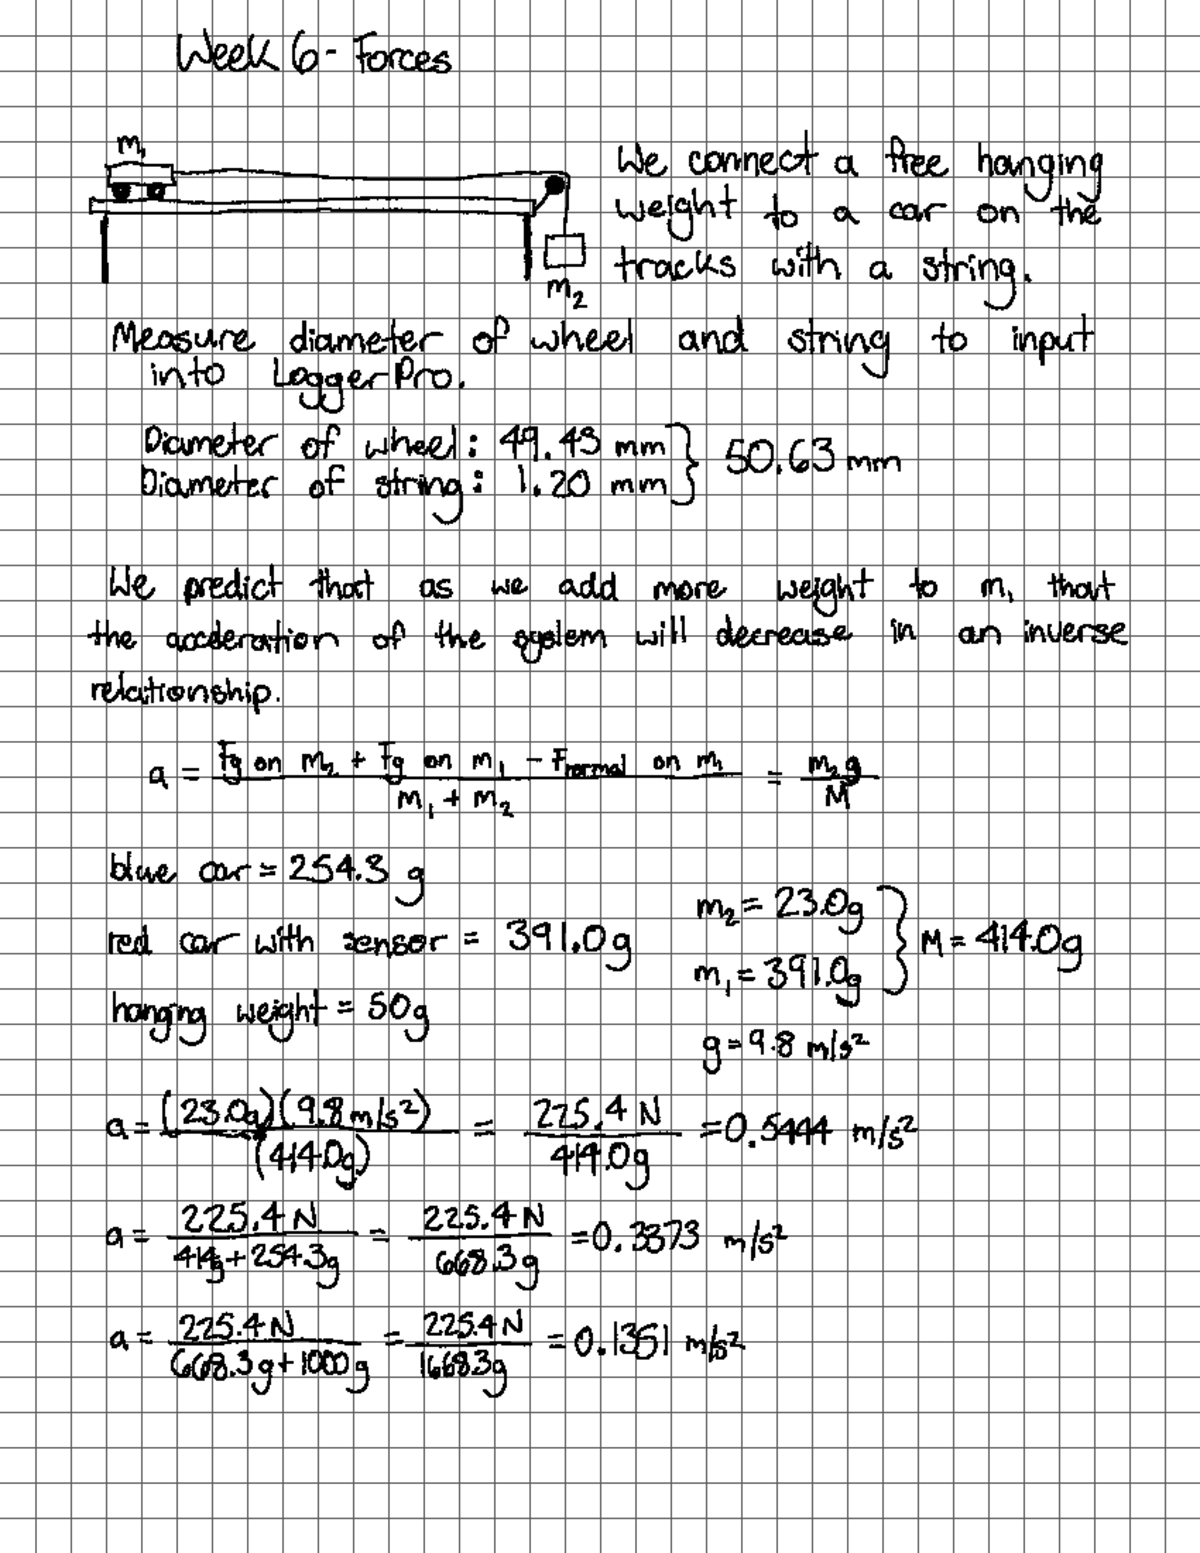 Week 6 - Forces
m₁
m₂
We connect a free hanging
weight to a car on the
tracks with a string.
Measure diameter of wheel and string to input
into LoggerPro.
Diameter of wheel: 49.43 mm } 50.63 mm
Diameter of string: 1.20 mm
We predict that as we add more weight to m₁ that
the acceleration of the system will decrease in an inverse
relationship.
a = (Fg on m₂ + Fg on m₁ - Fnormal on m₁) / (m₁ + m₂) = m₂g / M
blue car = 254.3 g
red car with sensor = 391.0g
hanging weight = 50g
m₂ = 23.0g } M = 414.0g
m₁ = 391.0g
g = 9.8 m/s²
a = (23.0g)(9.8m/s²) / (414.0g) = 225.4 N / 414.0g = 0.5444 m/s²
a = 225.4 N / 414g + 254.3g = 225.4 N / 668.3g = 0.3373 m/s²
a = 225.4 N / 668.3g + 1000g = 225.4 N / 1668.3g = 0.1351 m/s²